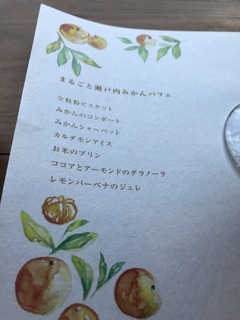 まるごと瀬戸内みかんパフェ
全粒粉ビスケット
みかんのコンポート
みかんシャーベット
カルダモンアイス
お米のプリン
ココアとアーモンドのグラノーラ
レモンバーベナのジュレ